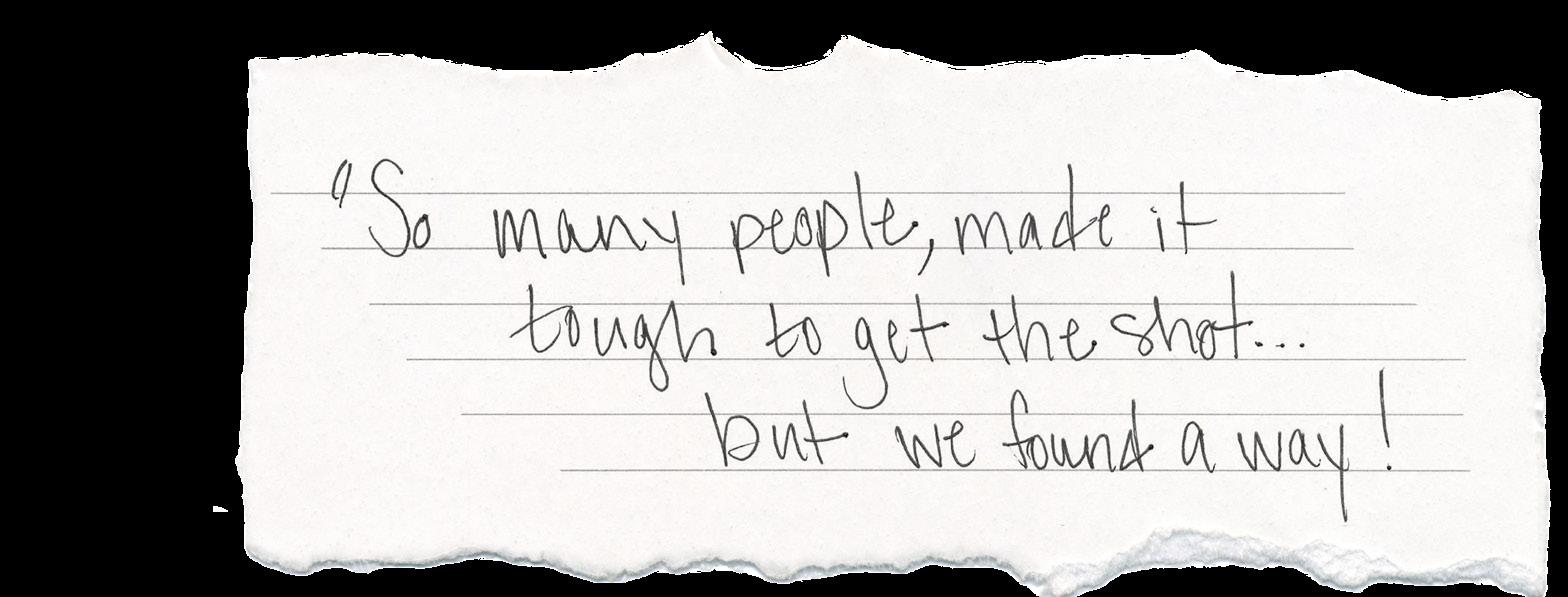 "So many people, made it
tough to get the shot...
but we found a way!